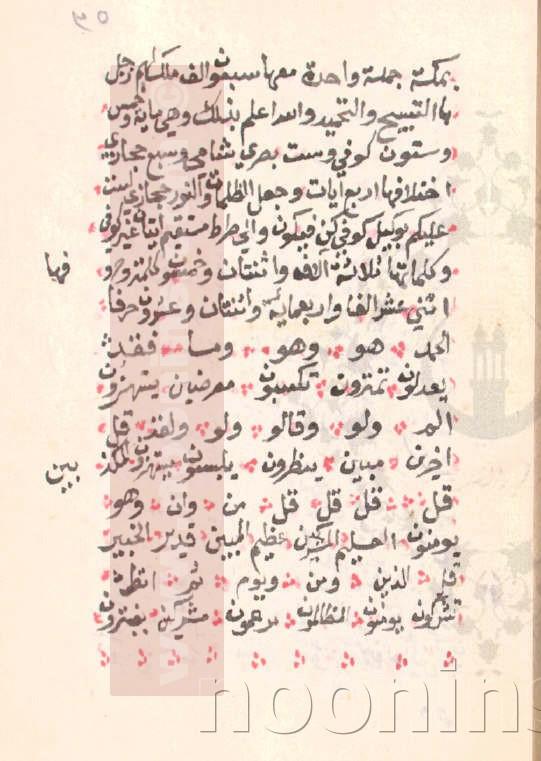 بمكة جملة واحدة معها سبعون الف ملك لهم زجل
بالتسبيح والتحميد والله اعلم بذلك وهي ماية وخمس
وستون كوفي وست بصري شامي وسبع حجازي
اختلافها اربع ايات وجعل الظلمات والنور حجازي لست
عليكم بوكيل كوفي كن فيكون والى صراط مستقيم غير كوفي
وكلماتها ثلاثة الاف واثنتان وخمسون كلمة وحروفها
اثني عشر الفا واربعماية واثنتان وعشرون حرفا
الحمد هو وهو وما فقد
يعدلون تمترون تكسبون معرضين يستهزؤن
الم ولو وقالو ولو ولقد قل
اخرين مبين ينظرون يلبسون يستهزؤن المكذبين
قل قل قل قل من وان وهو
يومنون العليم المشركين عظيم المبين قدير الخبير
قل الذين ومن ويوم ثم انظر
تشركون يومنون الظالمون تزعمون مشركين يفترون
noonins